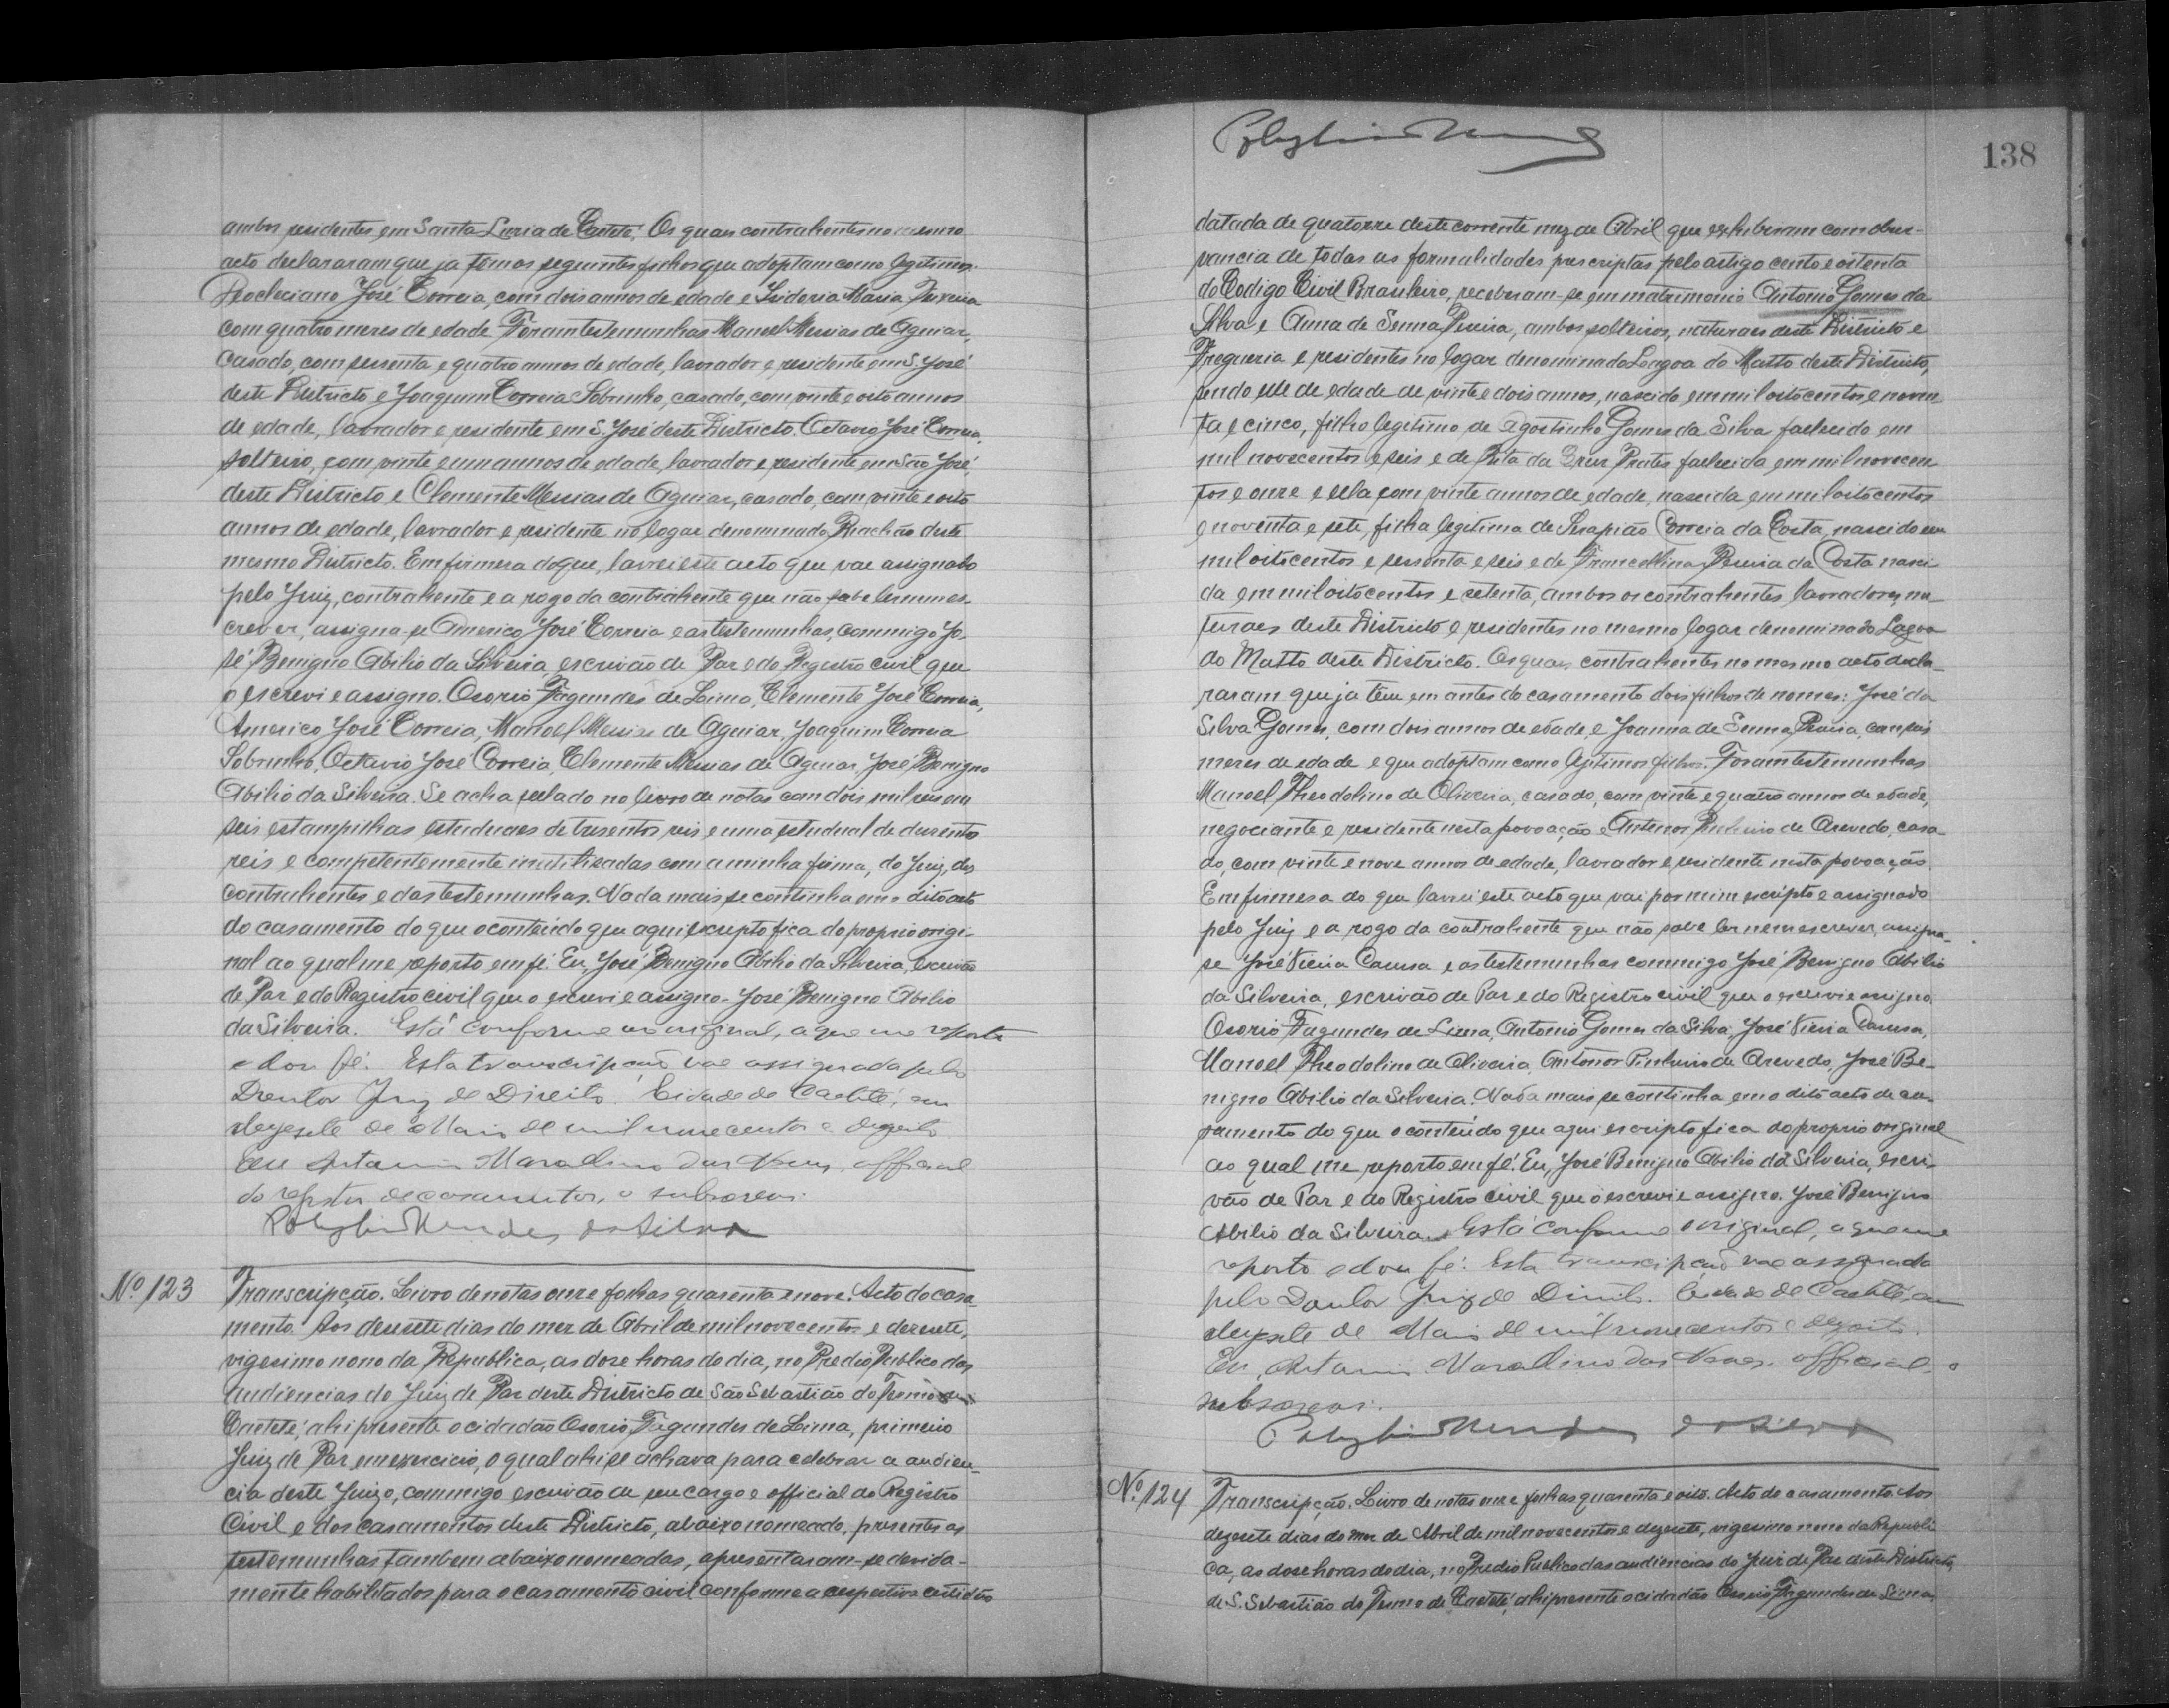 ambos residentes em Santa Luzia de Caeteté. Os quaes contrahentes no mesmo
acto declararam que ja temos seguintes filhos que adoptam como legitimos.
Deocleciano José Correia, com dois annos de edade e Isidoria Maria Pereira
com quatro mezes de edade. Foram testemunhas Manoel Messias de Aguiar,
casado, com sessenta e quatro annos de edade, lavrador e residente em S. José
deste Districto e Joaquim Correia Sobrinho, casado, com vinte e oito annos
de edade, lavrador e residente em S. José deste Districto. Octavio José Correia,
solteiro, com vinte e um annos de edade, lavrador e residente em São José,
deste Districto e Clemente Messias de Aguiar, casado, com vinte e oito
annos de edade, lavrador e residente no logar denominado Riachão deste
mesmo Districto. Em firmesa do que, lavrei este acto que vae assignado
pelo Juiz, contrahente e a rogo da contrahente que não sabe ler nem es-
crever, assigna-se Americo José Correia e as testemunhas, commigo Jo-
sé Benigno Abilio da Silveira, escrivão de Paz e do Registro civil que
o escrevi e assigno. Osorio Fagundes de Lima, Clemente José Correia,
Americo José Correia, Manoel Messias de Aguiar, Joaquim Correia
Sobrinho, Octavio José Correia, Clemente Messias de Aguiar, José Benigno
Abilio da Silveira. Se acha sellado no livro de notas com dois mil reis em
seis estampilhas estaduaes de tresentos reis e uma estadual de dusentos
reis e competentemente inutilisadas com a minha firma, do Juiz, dos
contrahentes e das testemunhas. Nada mais se continha em o dito acto
do casamento do que o conteúdo que aqui escripto fica do proprio origi-
nal ao qual me reporto em fé. Eu, José Benigno Abilio da Silveira, Escrivão
de Paz e do Registro civil que o escrevi e assigno. José Benigno Abilio
da Silveira. Está conforme ao original, a que me reporto
e dou fé. Esta transcripção vae assignada pelo
Doutor Juiz de Direito. Cidade de Caeteté, em
dezesete de Maio de mil novecentos e dezoito
Eu Antonio Marcellino das Neves, official
do registro de casamentos, o subscrevi.
Polybio Mendes da Silva
Nº 123 Transcripção. Livro de notas onze folhas quarenta e nove. Acto do casa-
mento. Aos desesete dias do mez de Abril de mil novecentos e dezesete,
vigesimo nono da Republica, as dose horas do dia, no Predio Publico das
audiencias do Juiz de Paz deste Districto de São Sebastião do Termo de
Caeteté, ahi presente o cidadão Osorio Fagundes de Lima, primeiro
Juiz de Paz em exercicio, o qual ahi se achava para celebrar a audien-
cia deste Juizo, commigo escrivão de seu cargo e official do Registro
Civil e dos casamentos deste Districto, abaixo nomeado, presentes as
testemunhas tambem abaixo nomeadas, apresentaram-se devida-
mente habilitados para o casamento civil conforme a respectiva certidão
Polybio Mendes
138
datada de quatorze deste corrente mez de Abril que exhibiram com obser-
vancia de todas as formalidades prescriptas pelo artigo cento e oitenta
do Codigo Civil Brasileiro, receberam-se em matrimonio Antonio Gomes da
Silva e Anna de Senna Pereira, ambos solteiros, naturaes deste Districto e
Freguezia e residentes no logar denominado Lagoa do Matto deste Districto,
sendo elle de edade de vinte e dois annos, nascido em mil oitocentos e noven-
ta e cinco, filho legitimo de Agostinho Gomes da Silva fallecido em
mil novecentos e seis e de Rita da Cruz Prates fallecida em mil novecen
tos e onze e ella com vinte annos de edade, nascida em mil oitocentos
e noventa e sete, filha legitima de Serapião Correia da Costa, nascido em
mil oitocentos e sessenta e seis e de Francellina Pereira da Costa nasci
da em mil oitocentos e setenta, ambos os contrahentes lavradores, na-
turaes deste Districto e residentes no mesmo logar denominado Lagoa
do Matto deste Districto. Os quaes contrahentes no mesmo acto decla-
raram que ja têm em antes do casamento dois filhos de nomes: José da
Silva Gomes, com dois annos de edade e Joanna de Senna Pereira, com seis
mezes de edade e que adoptam como legitimos filhos. Foram testemunhas
Manoel Theodolino de Oliveira, casado, com vinte e quatro annos de edade,
negociante e residente nesta povoação e Antenor Pinheiro de Azevedo, casa-
do, com vinte e nove annos de edade, lavrador e residente nesta povoação.
Em firmesa do que lavrei este acto que vai por mim escripto e assignado
pelo Juiz e a rogo da contrahente que não sabe ler nem escrever, assigna-
se José Vieira Casusa e as testemunhas commigo José Benigno Abilio
da Silveira, escrivão de Paz e do Registro civil que o escrevi e assigno.
Osorio Fagundes de Lima, Antonio Gomes da Silva, José Vieira Casusa,
Manoel Theodolino de Oliveira, Antenor Pinheiro de Azevedo, José Be-
nigno Abilio da Silveira. Nada mais se continha em o dito acto de ca-
samento do que o conteúdo que aqui escripto fica do proprio original
ao qual me reporto em fé. Eu, José Benigno Abilio da Silveira, escri-
vão de Paz e do Registro civil que o escrevi e assigno. José Benigno
Abilio da Silveira. Está conforme o original, a que me
reporto e dou fé. Esta transcripção vae assignada
pelo Doutor Juiz de Direito. Cidade de Caeteté, em
dezesete de Maio de mil novecentos e dezoito.
Eu, Antonio Marcellino das Neves, official, o
subscrevi.
Polybio Mendes da Silva
Nº 124 Transcripção. Livro de notas onze folhas quarenta e oito. Acto do casamento. Aos
dezesete dias do mez de Abril de mil novecentos e dezesete, vigesimo nono da Republi
ca, as dose horas do dia, no Predio Publico das audiencias do Juiz de Paz deste Districto,
de S. Sebastião do Termo de Caeteté, ahi presente o cidadão Osorio Fagundes de Lima,